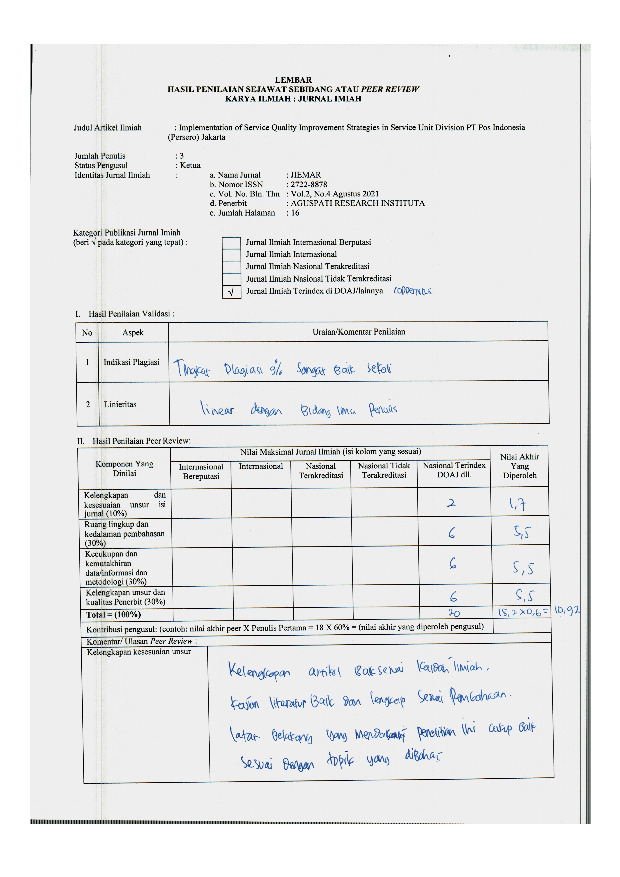 LEMBAR
HASIL PENILAIAN SEJAWAT SEBIDANG ATAU PEER REVIEW
KARYA ILMIAH : JURNAL IMIAH
Judul Artikel Ilmiah : Implementation of Service Quality Improvement Strategies in Service Unit Division PT Pos Indonesia
(Persero) Jakarta
Jumlah Penulis : 3
Status Pengusul : Ketua
Identitas Jurnal Ilmiah : a. Nama Jurnal : JIEMAR
b. Nomor ISSN : 2722-8878
c. Vol. No. Bln. Thn : Vol.2, No.4 Agustus 2021
d. Penerbit : AGUSPATI RESEARCH INSTITUTA
e. Jumlah Halaman : 16
Kategori Publikasi Jurnal Imiah
(beri √ pada kategori yang tepat) :
Jurnal Ilmiah Internasional Berputasi
Jurnal Ilmiah Internasional
Jurnal Ilmiah Nasional Terakreditasi
Jurnal Ilmiah Nasional Tidak Terakreditasi
√ Jurnal Ilmiah Terindex di DOAJ/lainnya
I. Hasil Penilaian Validasi :
No Aspek Uraian/Komentar Penilaian
1 Indikasi Plagiasi Tingkat Plagiasi 9% Sangat Baik Sekali
2 Linieritas linear dengan Bidang Ilmu Penulis
II. Hasil Penilaian Peer Review:
Komponen Yang Dinilai
Nilai Maksimal Jurnal Ilmiah (isi kolom yang sesuai)
Nilai Akhir Yang Diperoleh
Internasional Bereputasi
Internasional
Nasional Terakreditasi
Nasional Tidak Terakreditasi
Nasional Terindex DOAJ dll.
Kelengkapan dan kesesuaian unsur isi jurnal (10%) 2 1,7
Ruang lingkup dan kedalaman pembahasan (30%) 6 5,5
Kecukupan dan kemutakhiran data/informasi dan metodologi (30%) 6 5,5
Kelengkapan unsur dan kualitas Penerbit (30%) 6 5,5
Total = (100%) 20 18,2 x 0,6 = 10,92
Kontribusi pengusul: (contoh: nilai akhir peer X Penulis Pertama = 18 X 60% = (nilai akhir yang diperoleh pengusul)
Komentar/ Ulasan Peer Review :
Kelengkapan kesesuaian unsur
Kelengkapan artikel Baik sesuai Kaidah Ilmiah.
Kajian literatur Baik dan lengkap Sesuai Pembahasan.
latar Belakang yang mendasari penelitian Ini cukup Baik
Sesuai Dengan topik yang dibahas